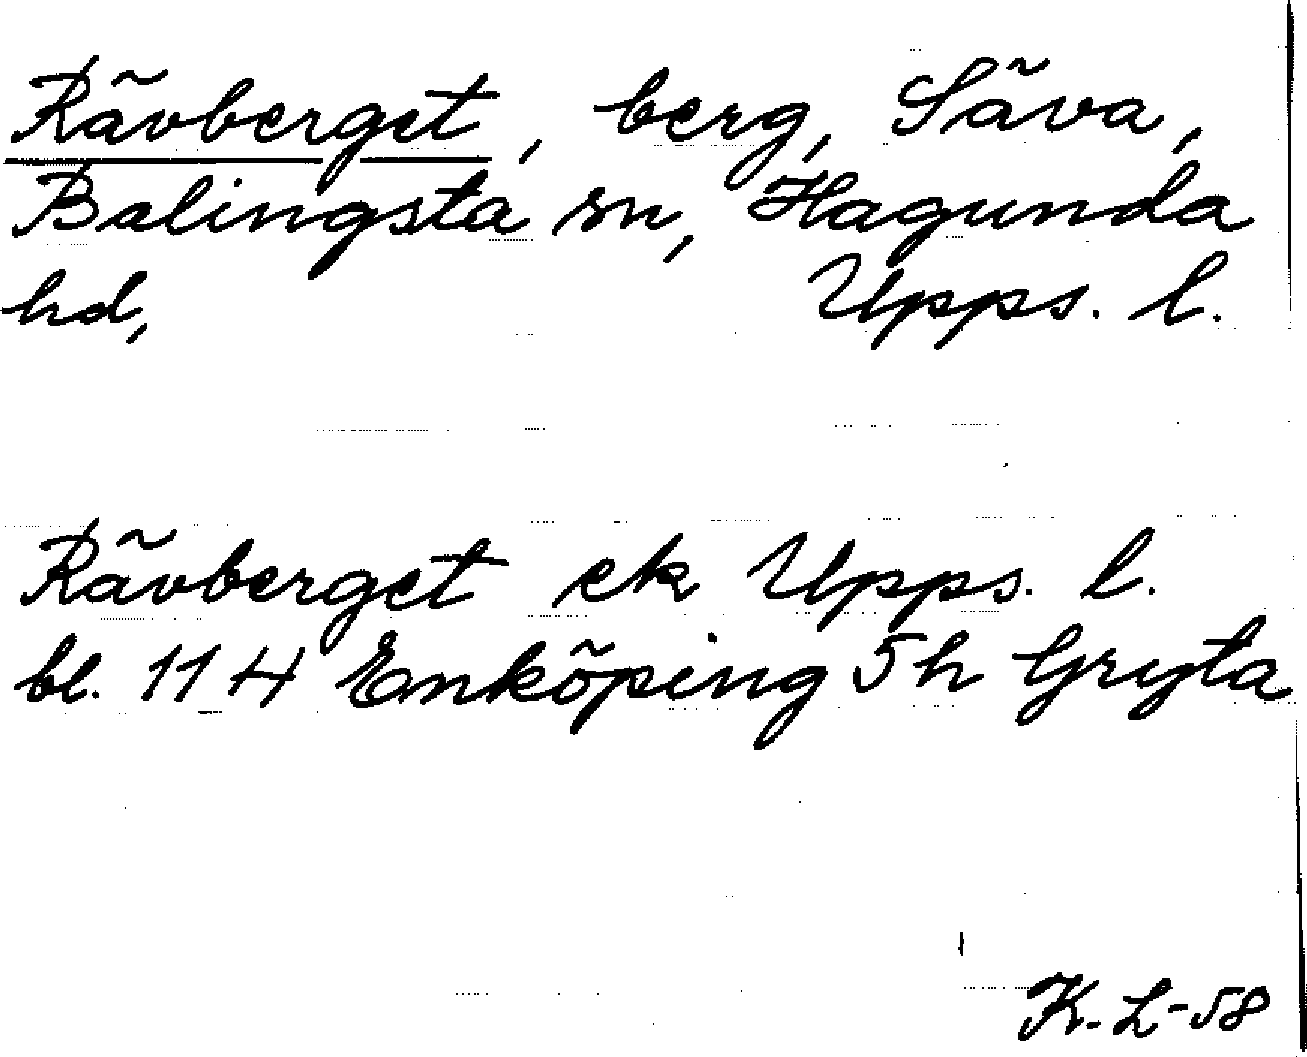 Rävberget, berg, Säva,
Balingsta sn, Hagunda
hd, Upps. l.
Rävberget ek Upps. l.
bl. 114 Enköping 5h Gryta
K. L-58